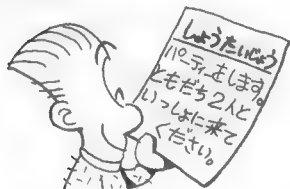 しょうたいじょう
パーティーをします。
ともだち2人と
いっしょに来て
ください。